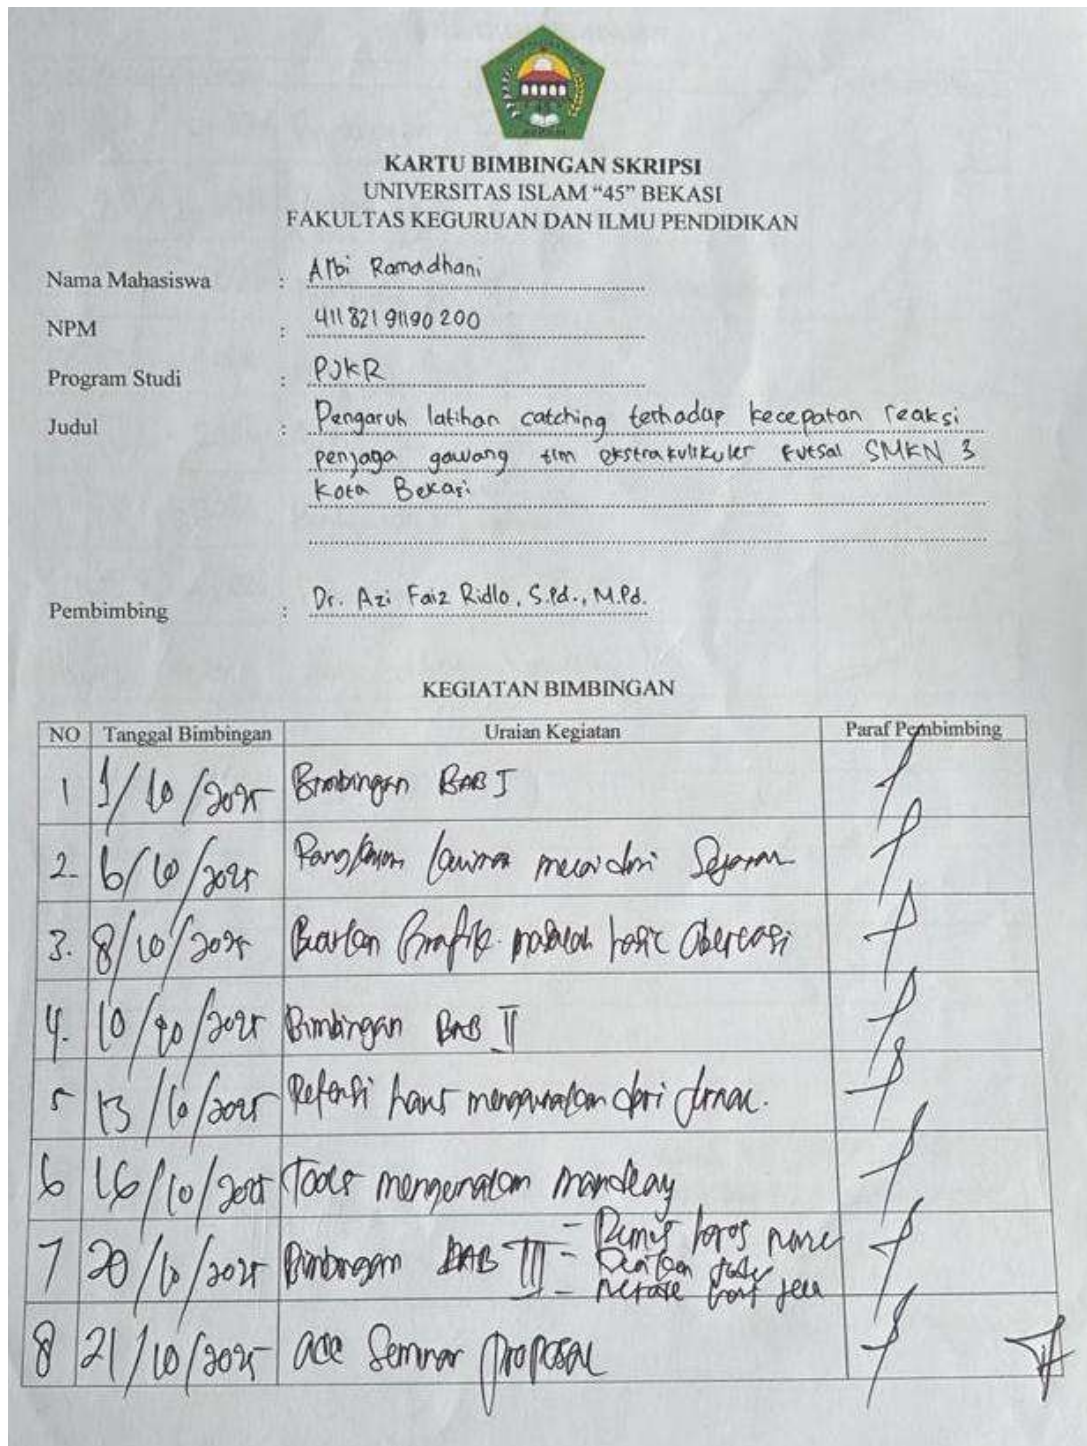 KARTU BIMBINGAN SKRIPSI
UNIVERSITAS ISLAM “45” BEKASI
FAKULTAS KEGURUAN DAN ILMU PENDIDIKAN
Nama Mahasiswa : Albi Ramadhani
NPM : 41182191190200
Program Studi : PJKR
Judul : Pengaruh latihan catching terhadap kecepatan reaksi
penjaga gawang tim ekstrakulikuler futsal SMKN 3
Kota Bekasi
Pembimbing : Dr. Azi Faiz Ridlo, S.Pd., M.Pd.
KEGIATAN BIMBINGAN
NO Tanggal Bimbingan Uraian Kegiatan Paraf Pembimbing
1 1/10/2025 Bimbingan BAB I
2. 6/10/2025
3. 8/10/2025 Buatkan Grafik masalah hasil
4. 10/10/2025 Bimbingan BAB II
5 13/10/2025 harus dari
6 16/10/2025 Tools
7 20/10/2025 Bimbingan BAB III
8 21/10/2025 acc Seminar proposal